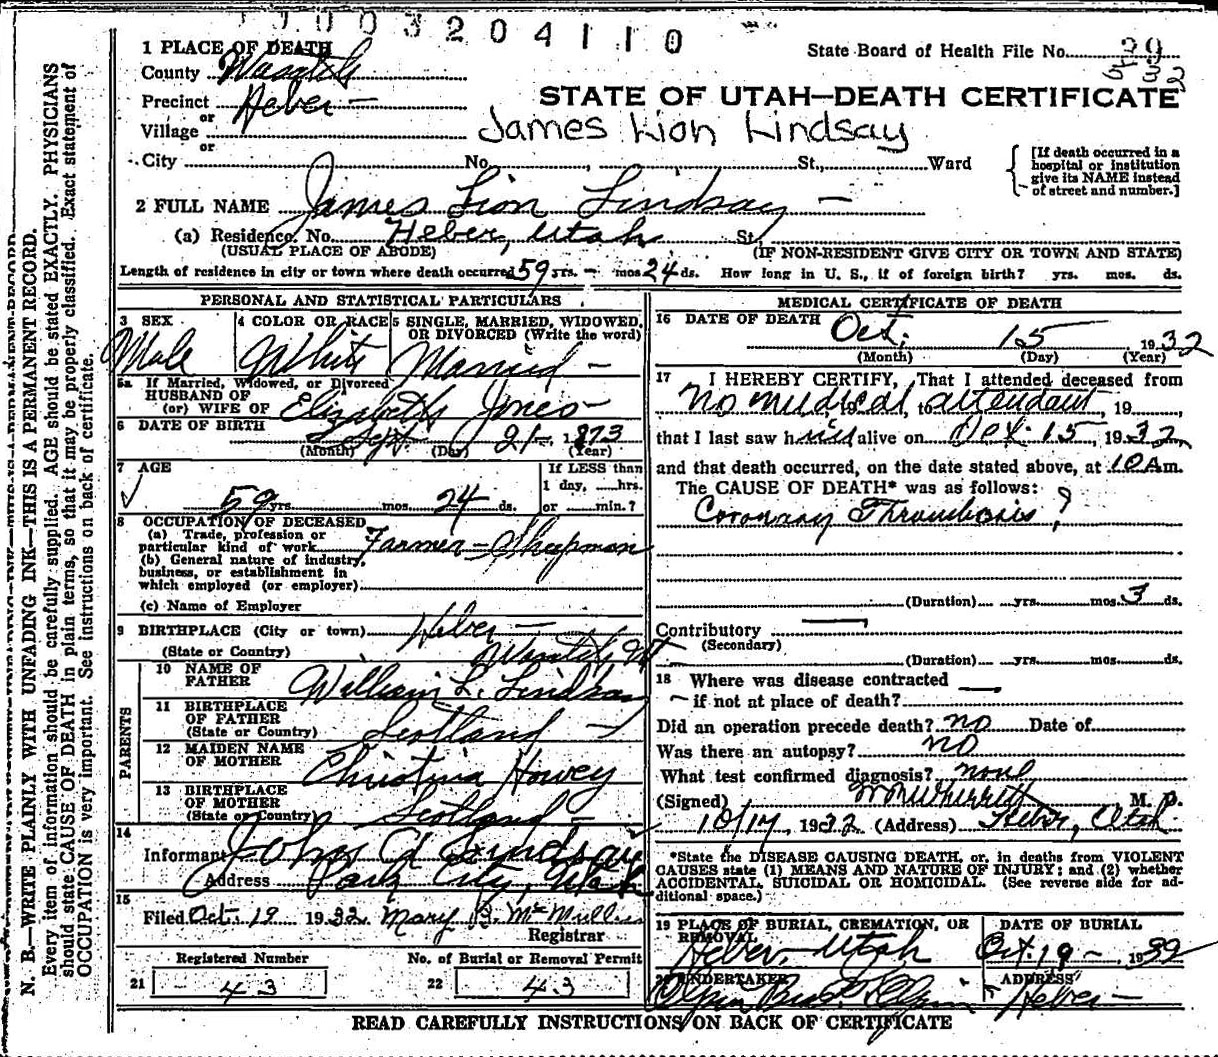 1003204110
State Board of Health File No. 29
532
1 PLACE OF DEATH
County Wasatch
Precinct Heber
or
Village
or
City No. St., Ward
STATE OF UTAH—DEATH CERTIFICATE
James Lion Lindsay
[If death occurred in a hospital or institution give its NAME instead of street and number.]
2 FULL NAME James Lion Lindsay
(a) Residence. No. Heber, Utah St.
(USUAL PLACE OF ABODE) (IF NON-RESIDENT GIVE CITY OR TOWN AND STATE)
Length of residence in city or town where death occurred 59 yrs. – mos 24 ds. How long in U. S., if of foreign birth? yrs. mos. ds.
PERSONAL AND STATISTICAL PARTICULARS
3 SEX
Male
4 COLOR OR RACE
White
5 SINGLE, MARRIED, WIDOWED, OR DIVORCED (Write the word)
Married
5a If Married, Widowed, or Divorced
HUSBAND OF
(or) WIFE OF Elizabeth Jones
6 DATE OF BIRTH Sept. 21 1873
(Month) (Day) (Year)
7 AGE
59 yrs. mos. 24 ds.
If LESS than
1 day, hrs.
or min.?
8 OCCUPATION OF DECEASED
(a) Trade, profession or
particular kind of work Farmer – Sheepman
(b) General nature of industry,
business, or establishment in
which employed (or employer)
(c) Name of Employer
9 BIRTHPLACE (City or town) Heber
(State or Country) Wasatch Ut
PARENTS
10 NAME OF FATHER William L. Lindsay
11 BIRTHPLACE OF FATHER (State or Country) Scotland
12 MAIDEN NAME OF MOTHER Christina Howey
13 BIRTHPLACE OF MOTHER (State or Country) Scotland
14
Informant John C Lindsay
(Address Park City, Utah
15
Filed Oct. 19 1932 Mary B. McMullin
Registrar
Registered Number No. of Burial or Removal Permit
21 43 22 43
MEDICAL CERTIFICATE OF DEATH
16 DATE OF DEATH Oct. 15 1932
(Month) (Day) (Year)
17 I HEREBY CERTIFY, That I attended deceased from
No medical 19, to attendant, 19
that I last saw h alive on Oct. 15, 1932
and that death occurred, on the date stated above, at 10 Am.
The CAUSE OF DEATH* was as follows:
Coronary Thrombosis?
(Duration) yrs. mos. 3 ds.
Contributory
(Secondary)
(Duration) yrs. mos. ds.
18 Where was disease contracted
if not at place of death?
Did an operation precede death? no Date of
Was there an autopsy? no
What test confirmed diagnosis? none
(Signed) M. D.
10/17, 1932 (Address) Heber, Utah
*State the DISEASE CAUSING DEATH, or, in deaths from VIOLENT
CAUSES state (1) MEANS AND NATURE OF INJURY; and (2) whether
ACCIDENTAL, SUICIDAL OR HOMICIDAL. (See reverse side for ad-
ditional space.)
19 PLACE OF BURIAL, CREMATION, OR REMOVAL DATE OF BURIAL
Heber, Utah Oct. 19 – 1932
20 UNDERTAKER ADDRESS
Olpin Heber
READ CAREFULLY INSTRUCTIONS ON BACK OF CERTIFICATE
N. B.—WRITE PLAINLY WITH UNFADING INK—THIS IS A PERMANENT RECORD.
Every item of information should be carefully supplied. AGE should be stated EXACTLY. PHYSICIANS
should state CAUSE OF DEATH in plain terms, so that it may be properly classified. Exact statement of
OCCUPATION is very important. See instructions on back of certificate.